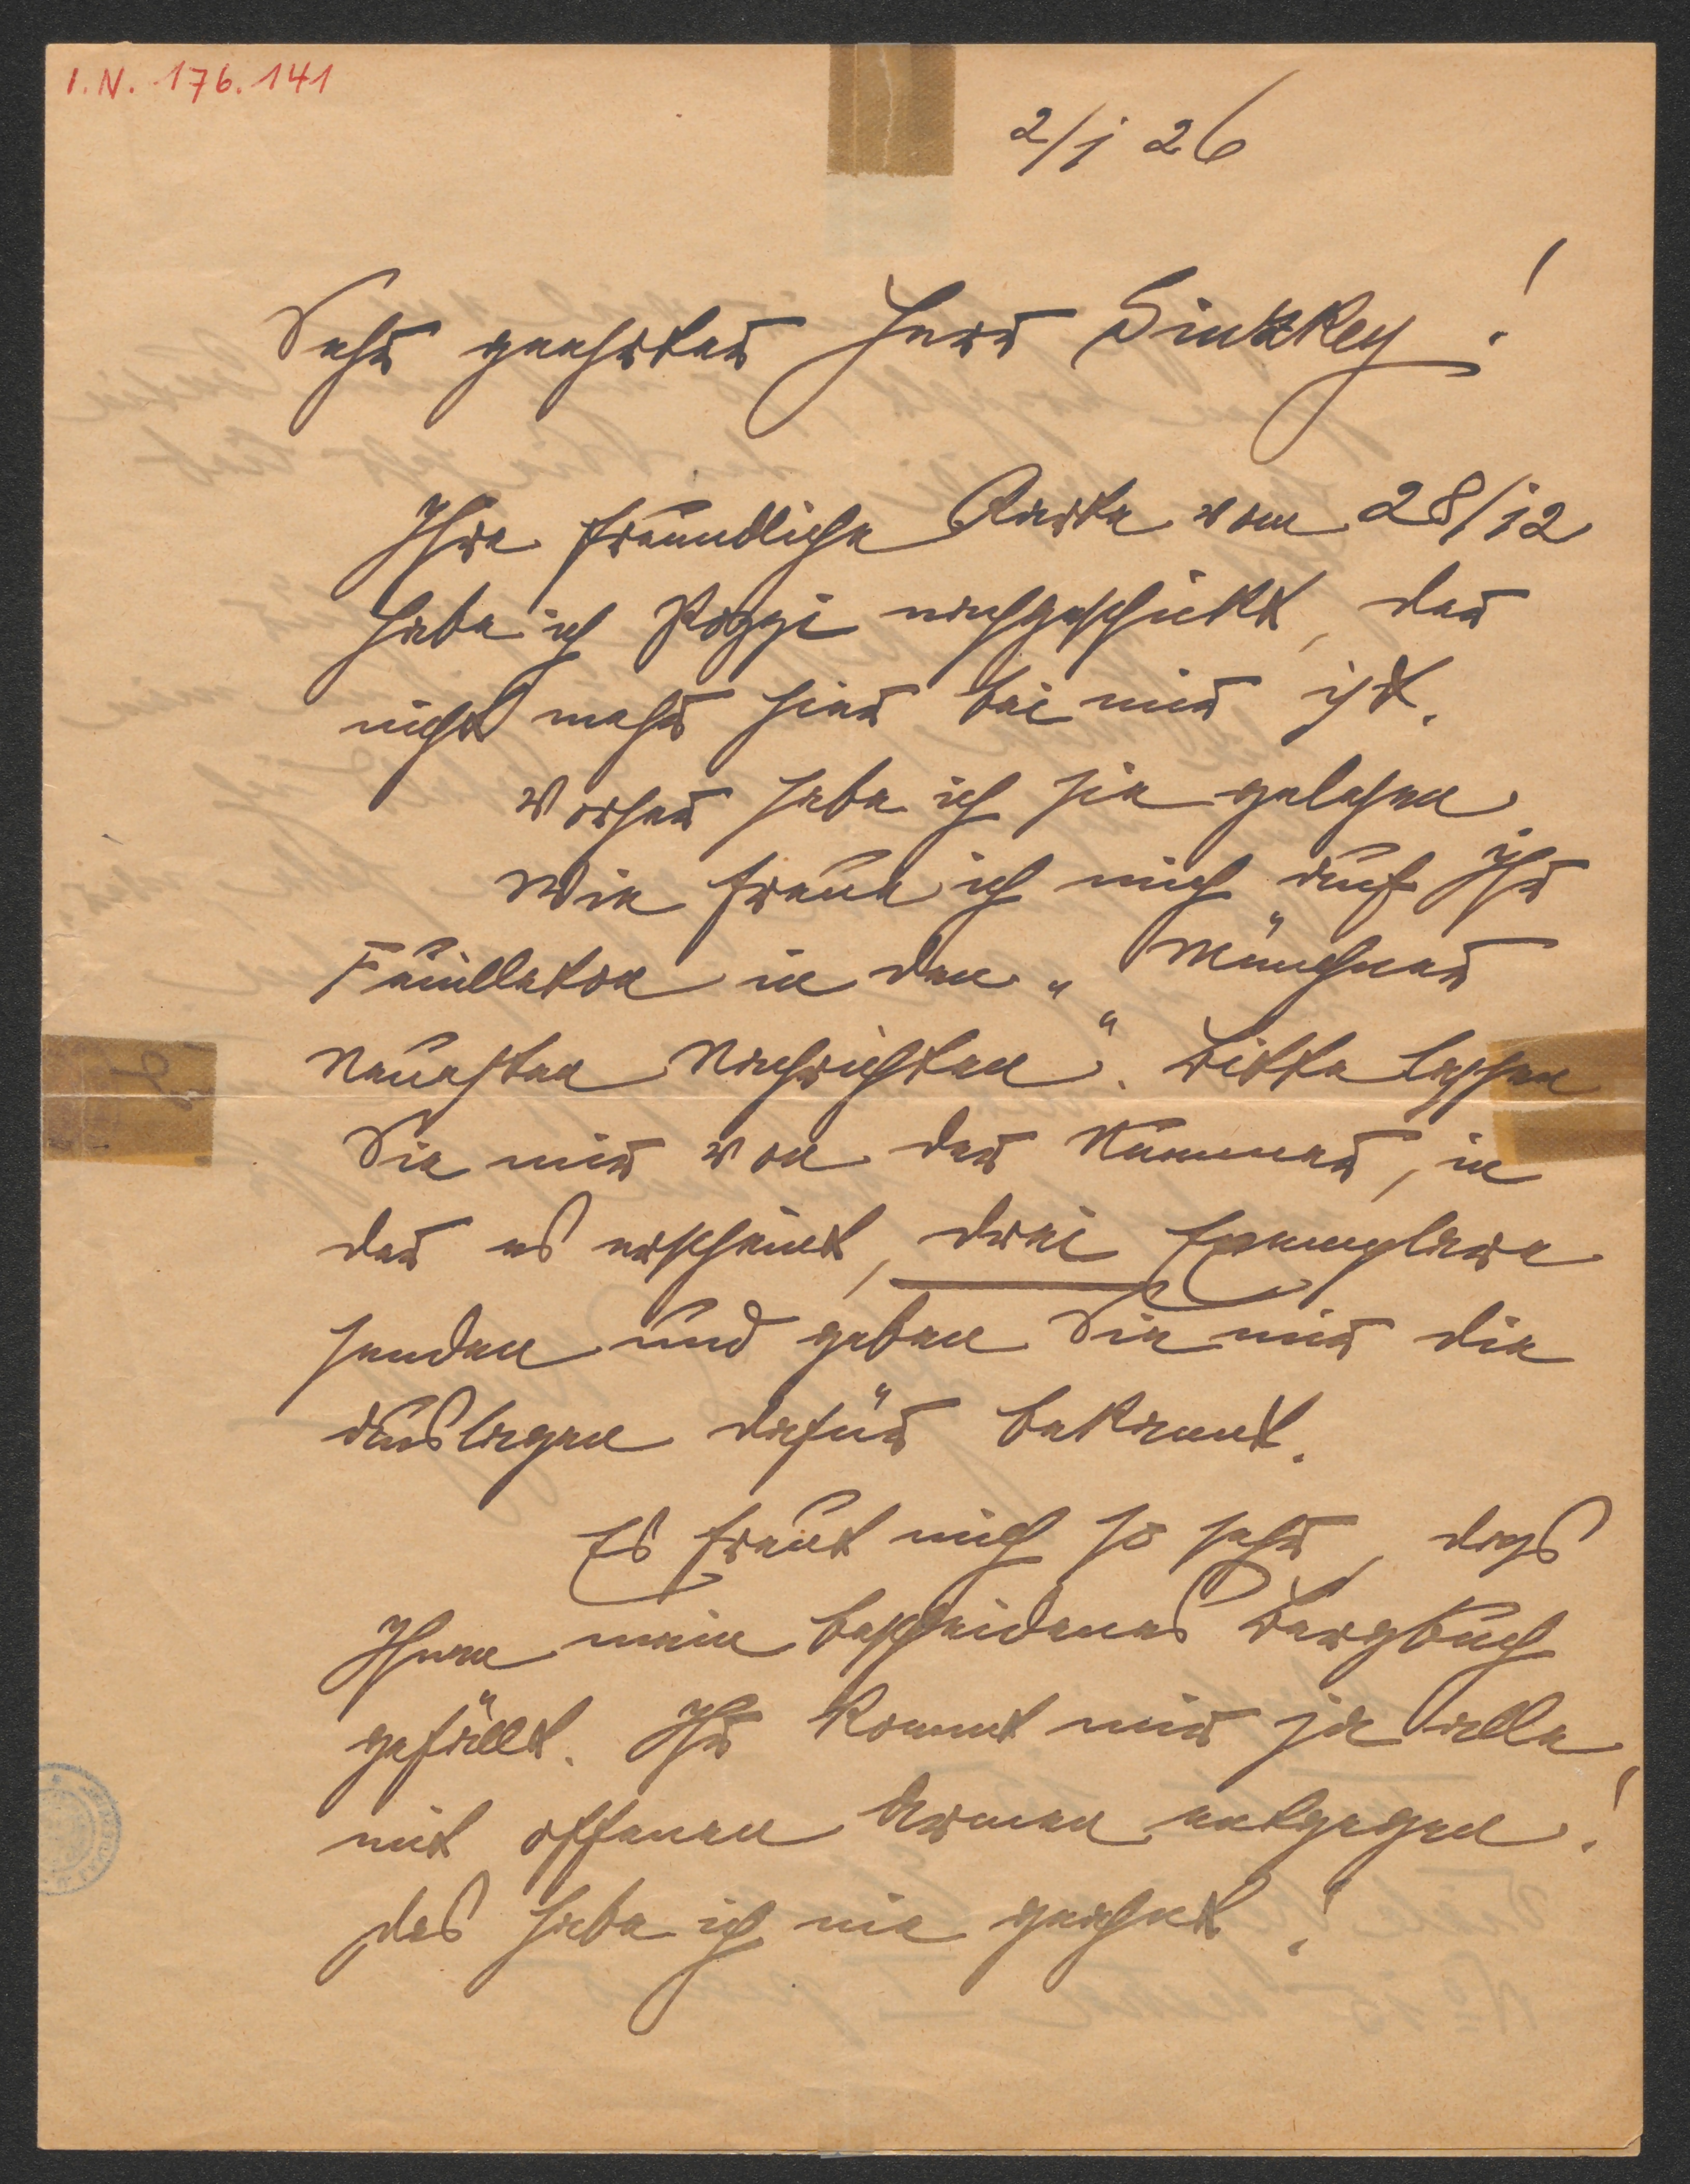 I.N. 176.141
2/1 26
Sehr geehrter Herr Ginzkey!
Ihre freundliche Karte vom 28/12
habe ich Poggi nachgeschickt, der
nicht mehr hier bei mir ist.
Vorher habe ich sie gelesen.
Wie freue ich mich auf Ihr
Feuilleton in den „Münchner
Neuesten Nachrichten“. Bitte lassen
Sie mir von der Nummer, in
der es erscheint, drei Exemplare
senden und geben Sie mir die
Auslagen dafür bekannt.
Es freut mich so sehr, dass
Ihnen mein bescheidenes Bergbuch
gefällt. Ihr kommt mir ja alle
mit offenen Armen entgegen!
das habe ich nie geahnt!